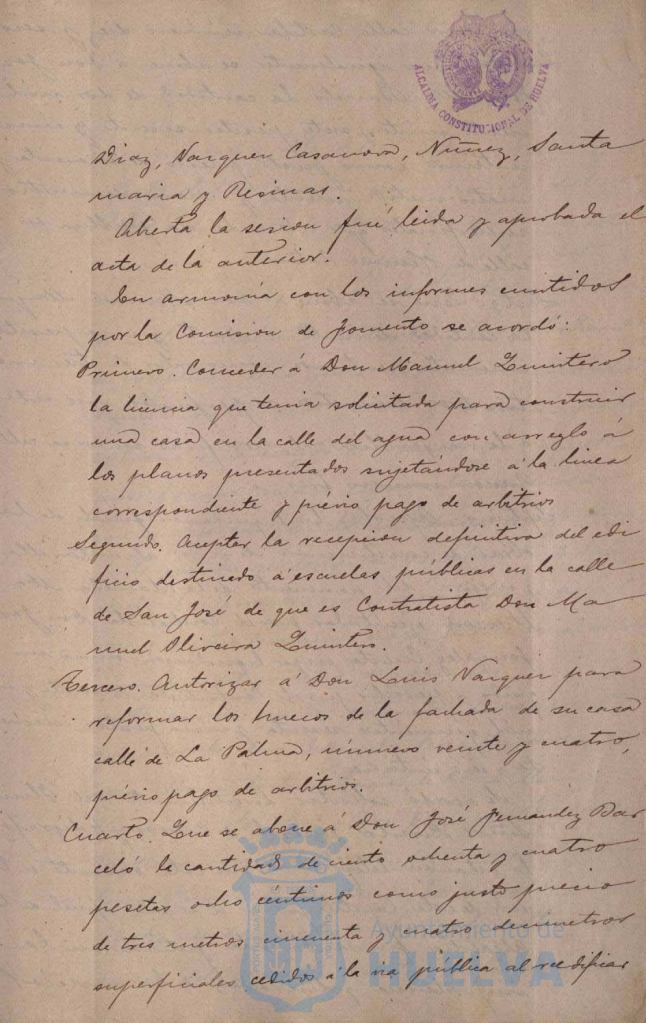 ALCALDIA CONSTITUCIONAL DE HUELVA
Diaz, Vazquez Casanova, Nuñez, Santa
maria y Resinas.
Abierta la sesion fué leida y aprobada el
acta de la anterior.
En armonía con los informes emitidos
por la Comision de Fomento se acordó:
Primero. Conceder á Don Manuel Quintero
la licencia que tenia solicitada para construir
una casa en la calle del agua con arreglo á
los planos presentados sujetándose á la linea
correspondiente y prévio pago de arbitrios
Segundo. Aceptar la recepcion definitiva del edi
ficio destinado á escuelas públicas en la calle
de San José de que es Contratista Don Ma
nuel Oliveira Quintero.
Tercero. Autorizar á Don Luis Vazquez para
reformar los huecos de la fachada de su casa
calle de La Palma, número veinte y cuatro,
prévio pago de arbitrios.
Cuarto. Que se abone á Don José Fernandez Bar
celó la cantidad de ciento ochenta y cuatro
pesetas ocho céntimos como justo precio
de tres metros cincuenta y cuatro decimetros
superficiales cedidos á la via pública al reedificar
Ayuntamiento de
HUELVA